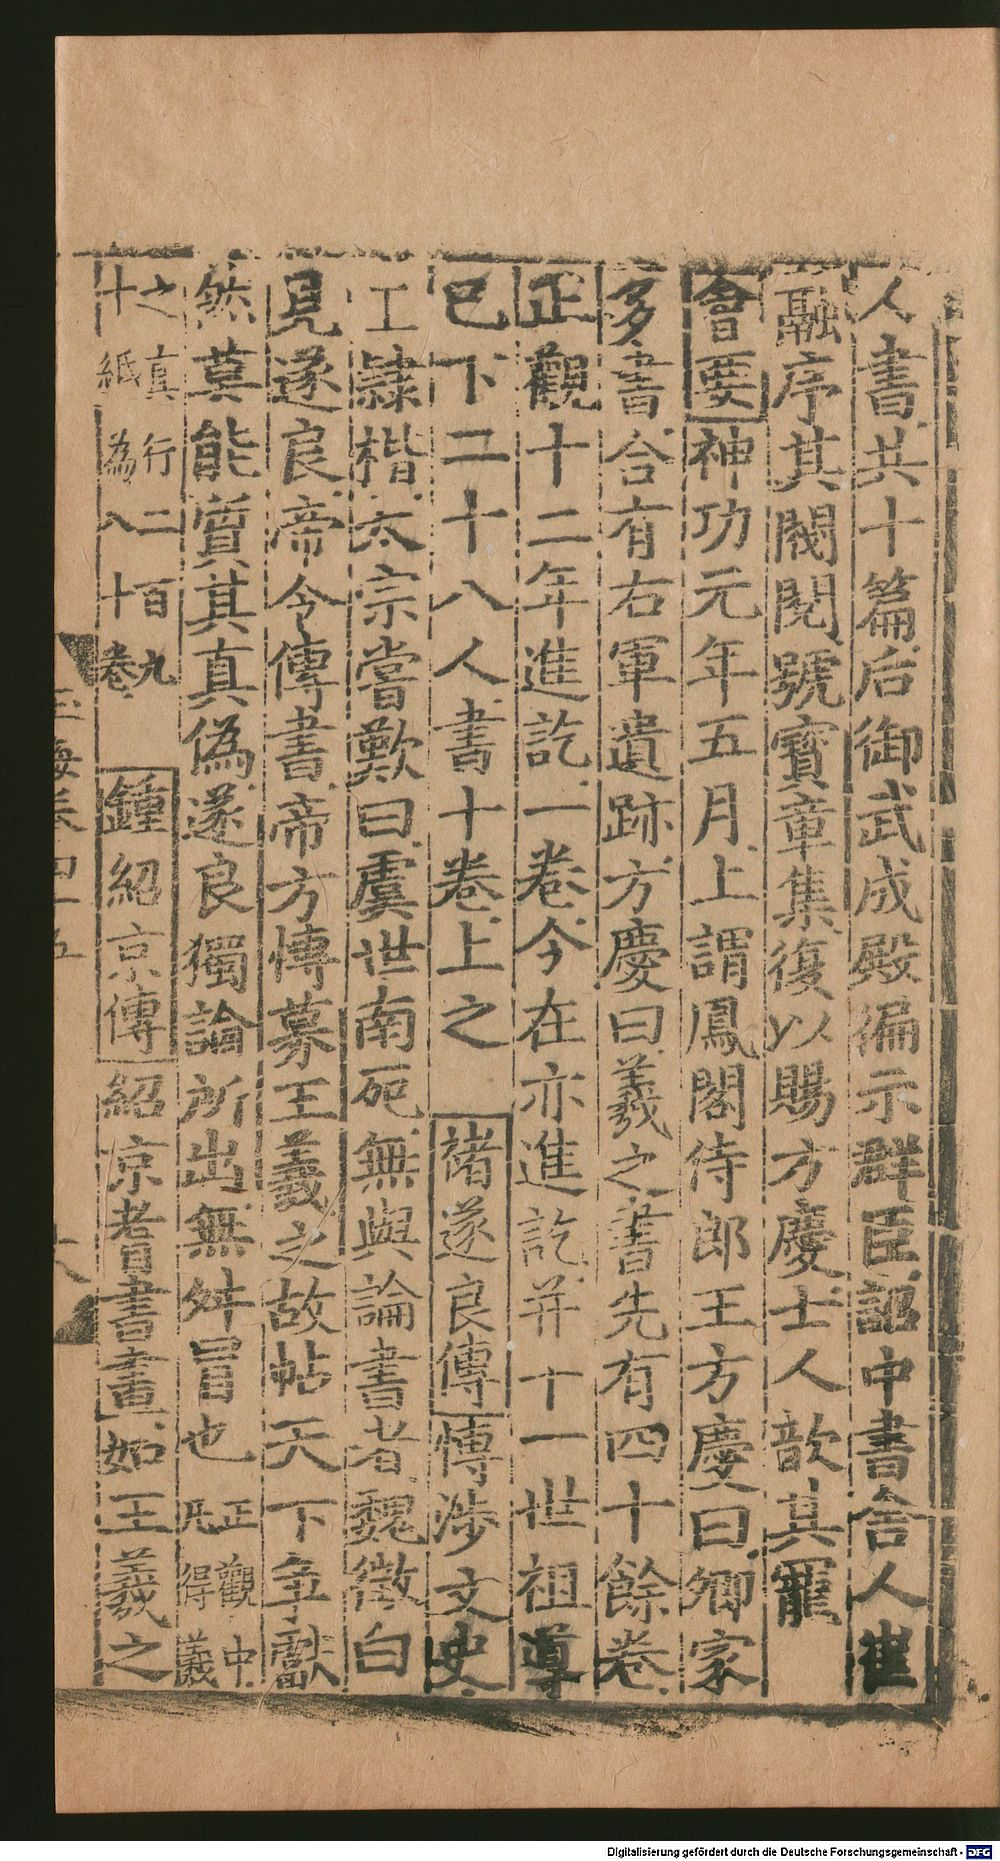 人書共十篇后御武成殿徧示群臣詔中書舍人崔
融序其閥閱號寶章集復以賜方慶士人歆其寵
會要神功元年五月上謂鳳閣侍郎王方慶曰卿家
多書合有右軍遺跡方慶曰羲之書先有四十餘卷
正觀十二年進訖一卷今在亦進訖并十一世祖導
已下二十八人書十卷上之　褚遂良傳博涉文史
工隸楷太宗嘗歎曰虞世南死無與論書者魏徵白
見遂良帝令傳書帝方博募王羲之故帖天下爭獻
然莫能質其真偽遂良獨論所出無舛冒也正觀中凡得羲
之真行二百九十紙為八十卷　鍾紹京傳紹京嗜書畫如王羲之
玉海卷四十五
Digitalisierung gefördert durch die Deutsche Forschungsgemeinschaft - DFG